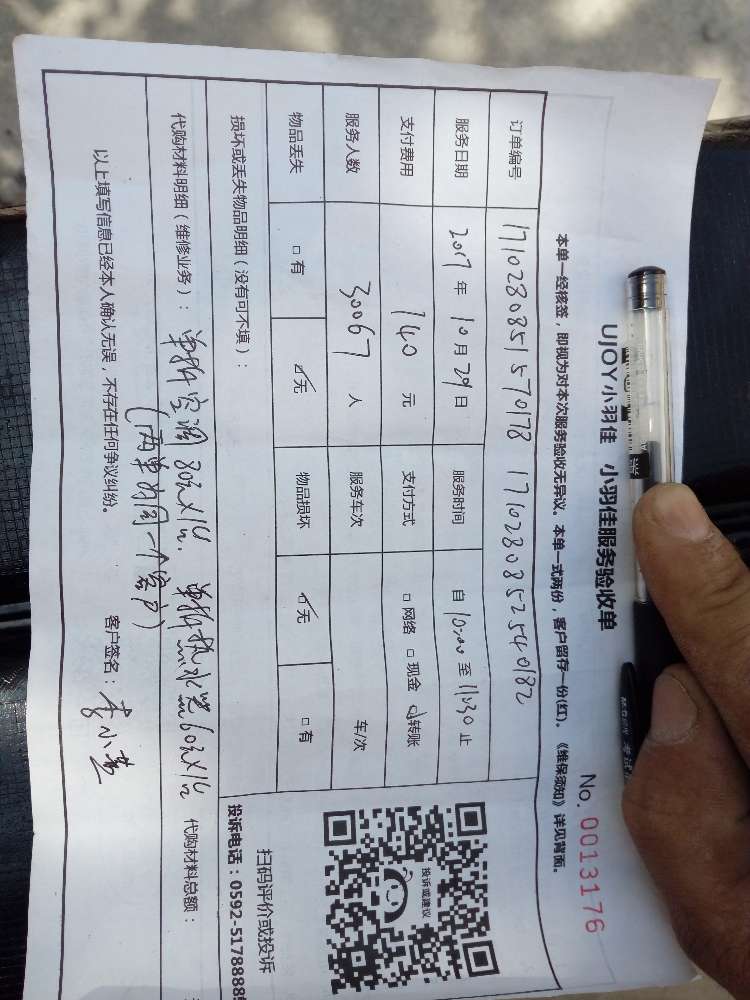 UJOY小羽佳 小羽佳服务验收单
No. 0013176
本单一经核签，即视为对本次服务验收无异议。本单一式两份，客户留存一份(红)。《维保须知》详见背面。
订单编号 1710280851570178 1710280852540182
服务日期 2017 年 10 月 29 日 服务时间 自 10:00 至 11:30 止
支付费用 140 元 支付方式 □ 网络 □ 现金 ☑ 转账
服务人数 30067 人 服务车次 车/次
物品丢失 □ 有 ☑ 无 物品损坏 ☑ 无 □ 有
损坏或丢失物品明细（没有可不填）：
代购材料明细（维修业务）： 单拆空调 80元×1台. 单拆热水器60元×1台 代购材料总额：
(两单为同一个客户)
以上填写信息已经本人确认无误，不存在任何争议纠纷。 客户签名：李小燕
投诉或建议
扫码评价或投诉
投诉电话：0592-5178888